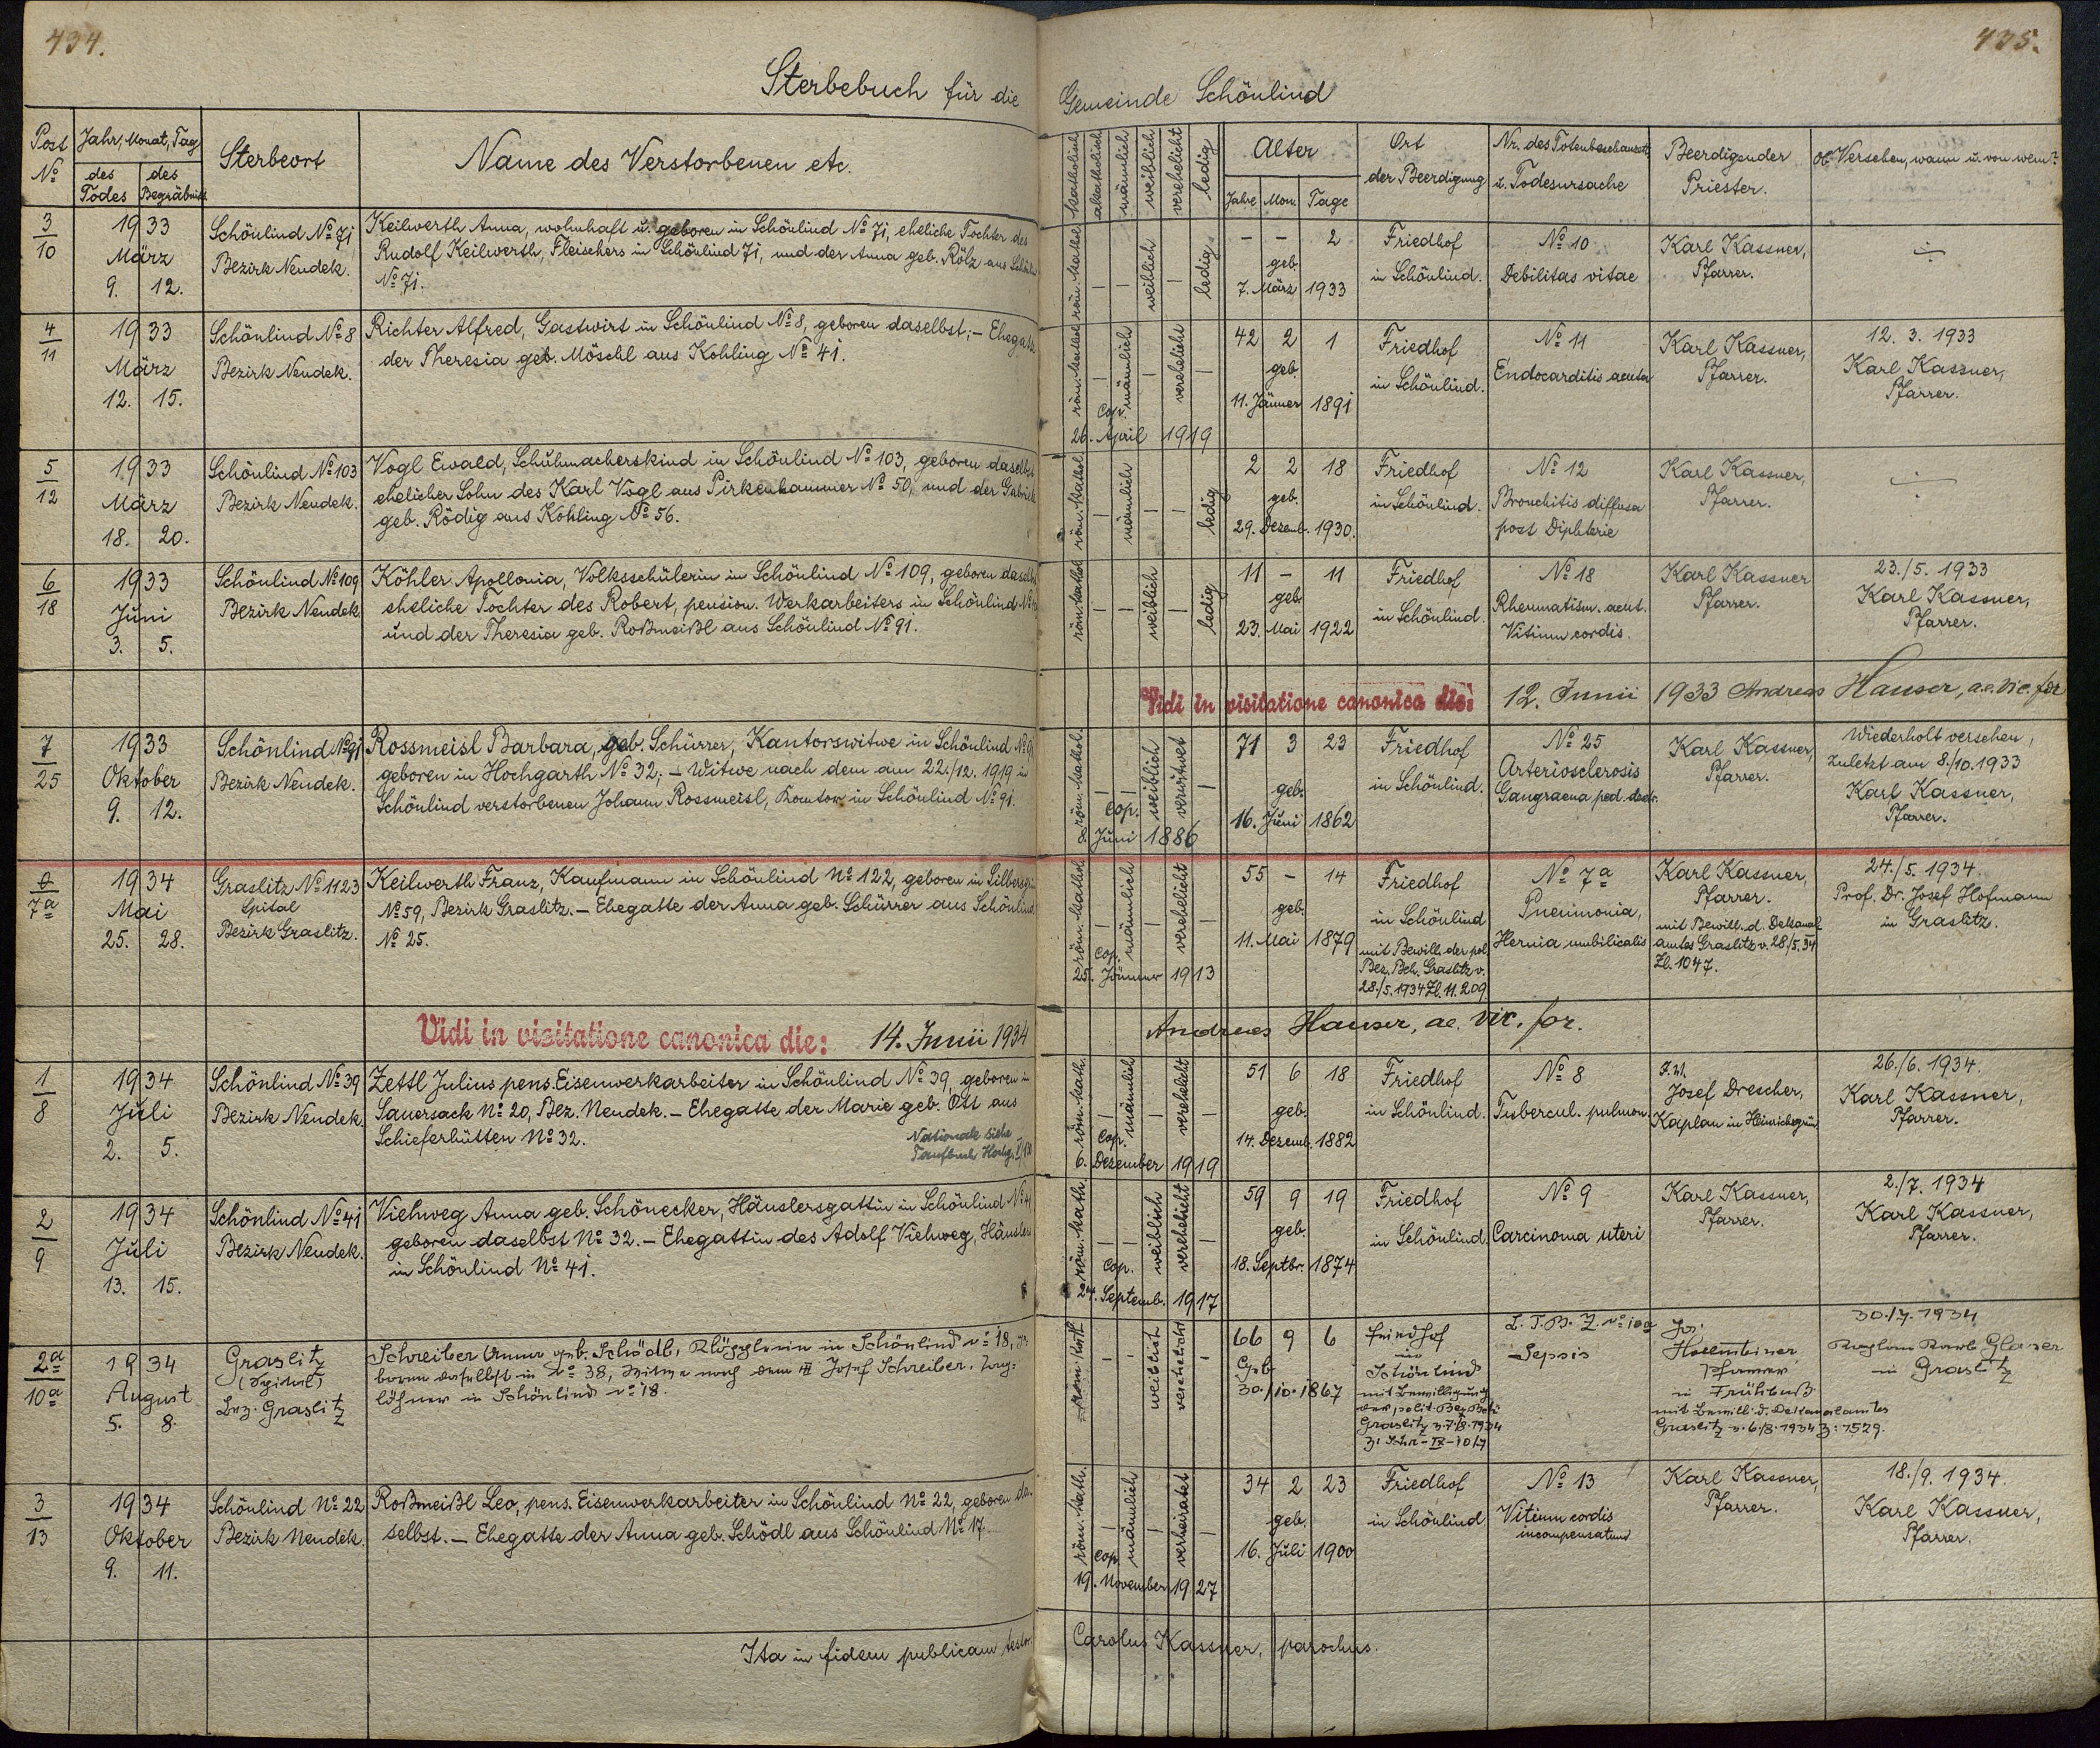 434.
435.
Sterbebuch für die Gemeinde Schönlind
Post No
Jahr, Monat, Tag
des Todes
des Begräbnisses
Sterbeort
Name des Verstorbenen etc.
katholisch
akatholisch
männlich
weiblich
verehelicht
ledig
Alter
Jahre
Mon.
Tage
Ort
der Beerdigung
Nr. des Totenbeschauzett.
u. Todesursache
Beerdigender
Priester.
Ob Versehen, wann u. von wem?
3
10
1933
März
9. 12.
Schönlind No 71
Bezirk Neudek.
Keilwerth Anna, wohnhaft u. geboren in Schönlind No 71, eheliche Tochter des
Rudolf Keilwerth, Fleischers in Schönlind 71, und der Anna geb. Rölz aus
No 71.
röm. kathol.
– – weiblich – ledig
– – 2
geb.
7. März 1933
Friedhof
in Schönlind.
No 10
Debilitas vitae
Karl Kassner,
Pfarrer.
÷
4
11
1933
März
12. 15.
Schönlind No 8
Bezirk Neudek.
Richter Alfred, Gastwirt in Schönlind No 8, geboren daselbst; – Ehegatte
der Theresia geb. Möschl aus Kohling No 41.
röm. kathol.
– männlich – verehelicht –
cop.
26. April 1919
42 2 1
geb.
11. Jänner 1891
Friedhof
in Schönlind.
No 11
Endocarditis acuta
Karl Kassner,
Pfarrer.
12. 3. 1933
Karl Kassner,
Pfarrer.
5
12
1933
März
18. 20.
Schönlind No 103
Bezirk Neudek.
Vogl Ewald, Schuhmacherskind in Schönlind No 103, geboren daselbst
ehelicher Sohn des Karl Vogl aus Pirkenhammer No 50, und der
geb. Rödig aus Kohling No 56.
röm. kathol.
– männlich – – ledig
2 2 18
geb.
29. Dezemb. 1930.
Friedhof
in Schönlind.
No 12
Bronchitis diffusa
post Diphterie
Karl Kassner,
Pfarrer.
÷
6
18
1933
Juni
3. 5.
Schönlind No 109
Bezirk Neudek
Köhler Apollonia, Volksschülerin in Schönlind No 109, geboren daselbst
eheliche Tochter des Robert, pension. Werkarbeiters in Schönlind
und der Theresia geb. Roßmeißl aus Schönlind No 91.
röm. kathol.
– – weiblich – ledig
11 – 11
geb.
23. Mai 1922
Friedhof
in Schönlind.
No 18
Rheumatism. acut.
Vitium cordis.
Karl Kassner
Pfarrer.
23./5. 1933
Karl Kassner,
Pfarrer.
Vidi in visitatione canonica die: 12. Junii 1933 Andreas Hauser, a.e. vic. for
7
25
1933
Oktober
9. 12.
Schönlind No 91
Bezirk Neudek.
Rossmeisl Barbara, geb. Schürrer, Kantorswitwe in Schönlind No 91
geboren in Hochgarth No 32; – Witwe nach dem am 22./12. 1919 in
Schönlind verstorbenen Johann Rossmeisl, Kantor in Schönlind No 91.
röm. kathol.
– – weiblich verwitwet –
cop.
8. Juni 1886
71 3 23
geb.
16. Juni 1862
Friedhof
in Schönlind.
No 25
Arteriosclerosis
Gangraena ped. dextr.
Karl Kassner,
Pfarrer.
Wiederholt versehen,
zuletzt am 8./10. 1933
Karl Kassner,
Pfarrer.
0
7a
1934
Mai
25. 28.
Graslitz No 1123
Spital
Bezirk Graslitz.
Keilwerth Franz, Kaufmann in Schönlind No 122, geboren in
No 59, Bezirk Graslitz. – Ehegatte der Anna geb. Schürrer aus Schönlind
No 25.
röm. kathol.
– männlich – verehelicht –
cop.
25. Jänner 1913
55 – 14
geb.
11. Mai 1879
Friedhof
in Schönlind
mit Bewill. der pol.
Bez. Beh. Graslitz v.
28./5. 1934 Zl. 11.209
No 7a
Pneumonia,
Hernia umbilicalis
Karl Kassner,
Pfarrer.
mit Bewill. d. Dekanal-
amtes Graslitz v. 28/5.34
Zl. 1047.
24./5. 1934.
Prof. Dr. Josef Hofmann
in Graslitz.
Vidi in visitatione canonica die: 14. Junii 1934
Andreas Hauser, ae. vic. for.
1
8
1934
Juli
2. 5.
Schönlind No 39
Bezirk Neudek.
Zettl Julius pens. Eisenwerkarbeiter in Schönlind No 39, geboren in
Sauersack No 20, Bez. Neudek. – Ehegatte der Marie geb. Ott aus
Schieferhütten No 32.
Nationale siehe
Taufbuch
röm. kath.
– männlich – verehelicht –
cop.
6. Dezember 1919
51 6 18
geb.
14. Dezemb. 1882
Friedhof
in Schönlind.
No 8
Tubercul. pulmon.
Josef Drescher,
Kaplan in Heinrichsgrün
26/6. 1934.
Karl Kassner,
Pfarrer.
2
9
1934
Juli
13. 15.
Schönlind No 41
Bezirk Neudek.
Viehweg Anna geb. Schönecker, Häuslersgattin in Schönlind No 41
geboren daselbst No 32. – Ehegattin des Adolf Viehweg, Häuslers
in Schönlind No 41.
röm. kath.
– – weiblich verehelicht –
cop.
24. Septemb. 1917
59 9 19
geb.
18. Septbr. 1874
Friedhof
in Schönlind.
No 9
Carcinoma uteri
Karl Kassner,
Pfarrer.
2./7. 1934
Karl Kassner,
Pfarrer.
2a
10a
1934
August
5. 8.
Graslitz
(Spital)
Bez. Graslitz
Schreiber Anna geb. Schödl, Klöpplerin in Schönlind No 18,
boren daselbst in No 38, Witwe nach dem Josef Schreiber, Tag-
löhner in Schönlind No 18.
röm. kath.
– – weiblich verehelicht –
66 9 6
Geb.
30./10. 1867
Friedhof
in
Schönlind
mit Bewilligung
der polit. Bez. Beh.
Graslitz v. 7./8. 1934
L. T. B. Z. No 10a
Sepsis
Jos.
Pfarrer
in Frühbuß
mit Bewill. d. Dekanalamtes
Graslitz v. 6./8. 1934 Z: 1529.
30./7. 1934
Kaplan Karl Glaser
in Graslitz
3
13
1934
Oktober
9. 11.
Schönlind No 22
Bezirk Neudek.
Roßmeißl Leo, pens. Eisenwerkarbeiter in Schönlind No 22, geboren da-
selbst. – Ehegatte der Anna geb. Schödl aus Schönlind No 17.
röm. kath.
– männlich – verheiratet –
cop.
19. November 1927
34 2 23
geb.
16. Juli 1900
Friedhof
in Schönlind
No 13
Vitium cordis
incompensatum
Karl Kassner,
Pfarrer.
18./9. 1934.
Karl Kassner,
Pfarrer.
Ita in fidem publicam testor Carolus Kassner, parochus.